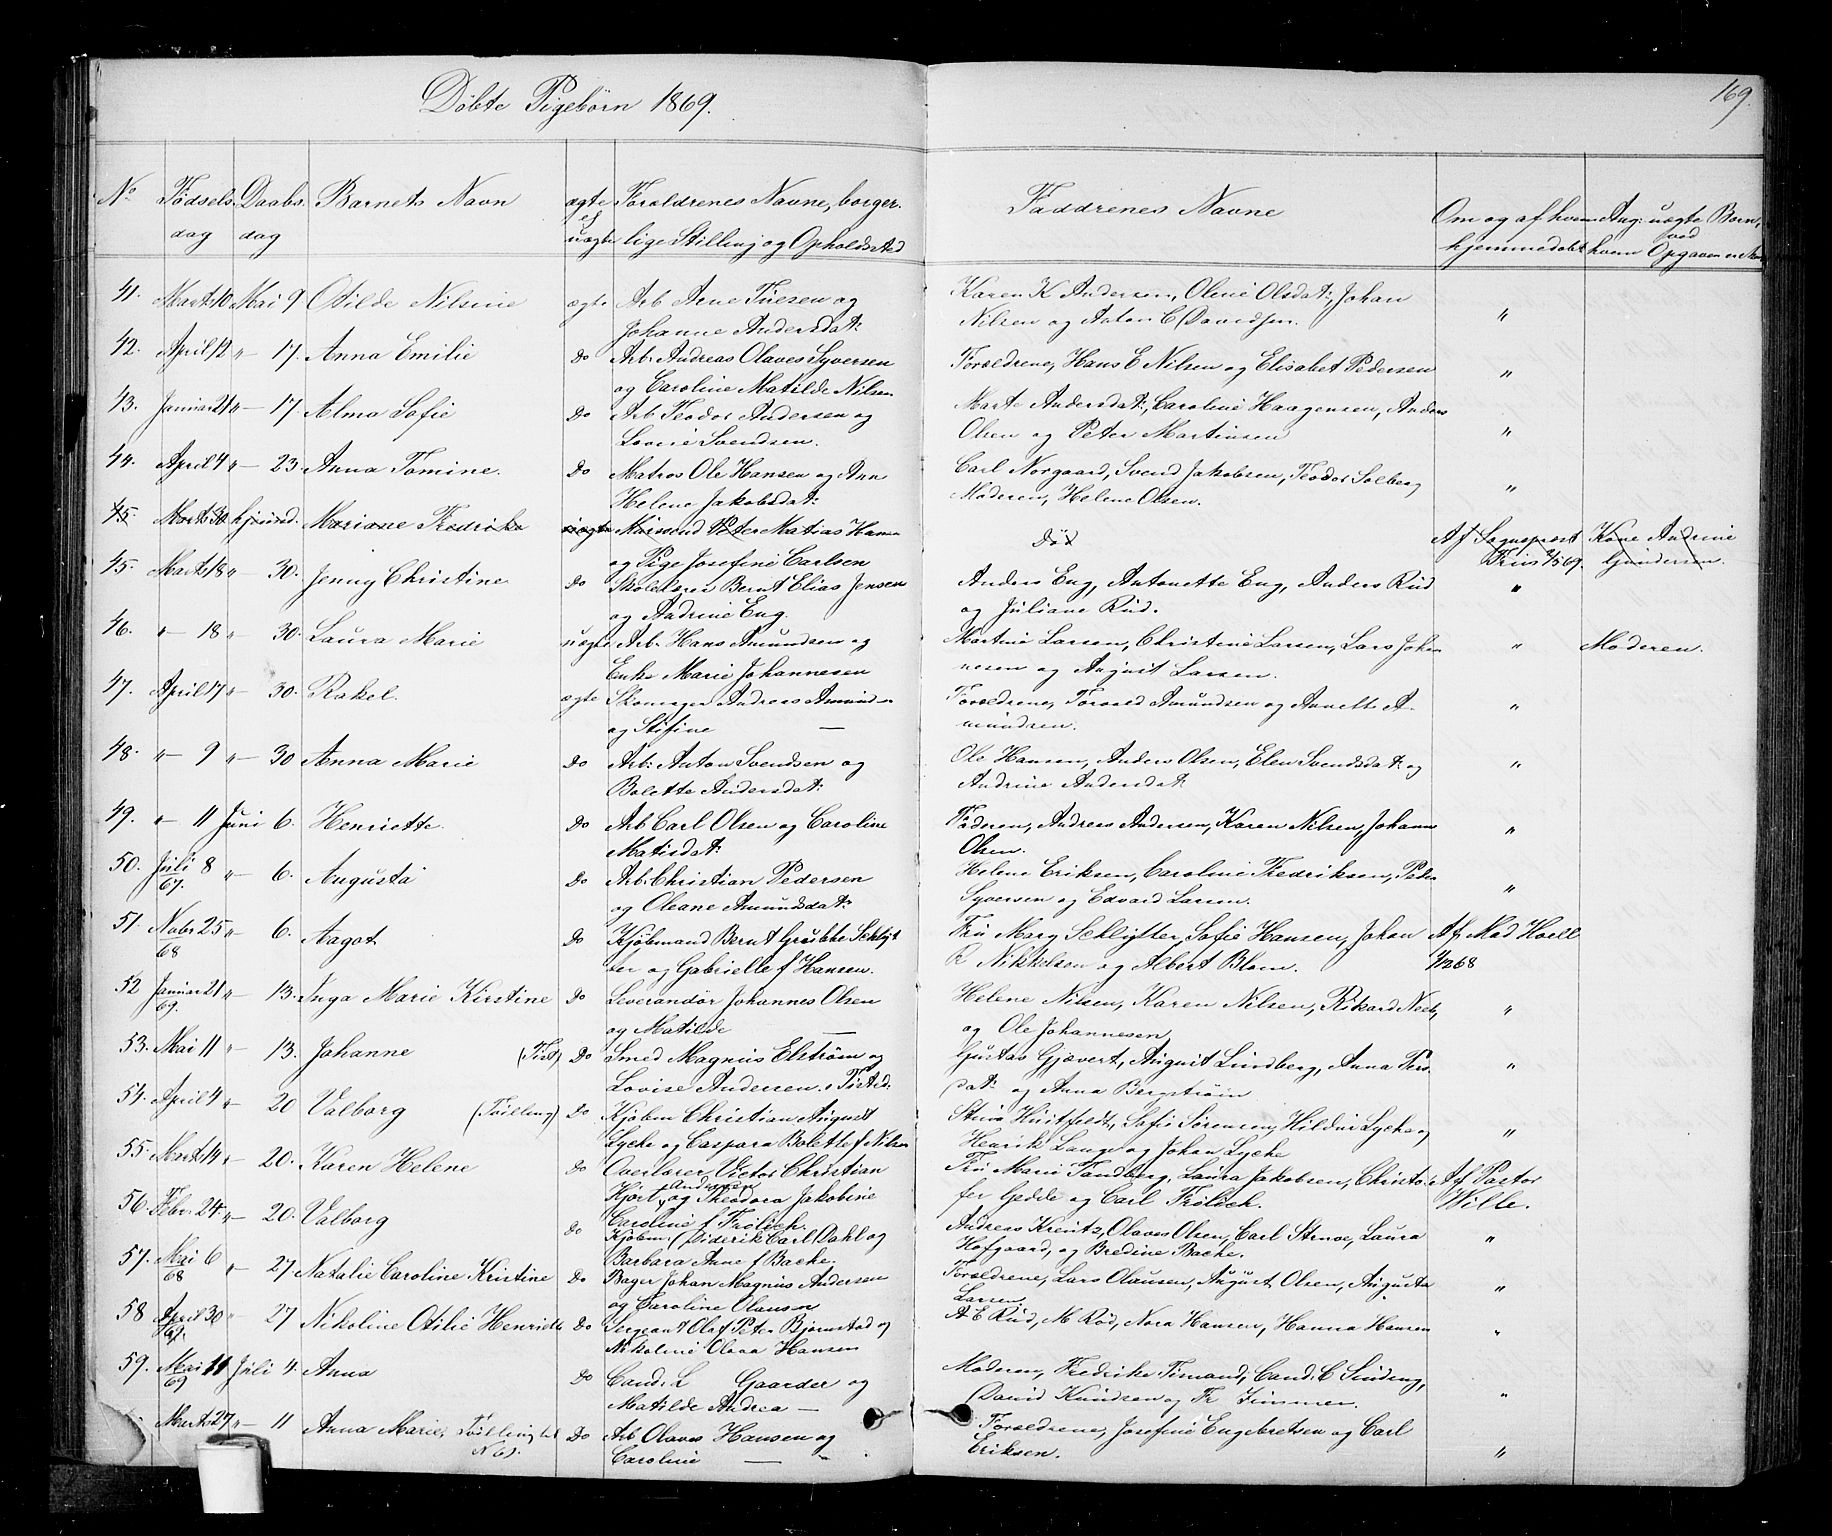 Døbte Pigebørn 1869.
169
No Fødsels dag Daabs dag Barnets Navn ægte el uægte Forældrenes Navne, borgerlige Stilling og Opholdssted Faddrenes Navne Om og af hvem hjemmedøbt Ang: uægte Børn, ved hvem Opgaven er
41. Marts 10 Mai 9 Otilde Nilsine ægte Arb Arne Tuesen og Karen K Andersen, Oline Olsdat:, Johan
Johanne Andersdat: Nilsen og Anton C Davidsen. "
42. April 12 " 17. Anna Emilie Do Arb: Andreas Olaves Syversen Forældrene, Hans E Nilsen og Elisabet Pedersen "
og Caroline Matilde Nilsen
43. Januar 21 " 17. Alma Sofie Do Arb Teodor Andersen og Marte Andersdat:, Caroline Haagensen, Anders
Lovise Svendsen. Olsen og Peter Martinsen "
44. April 4 " 23. Anna Tomine. Do Matros Ole Hansen og Ann Carl Norgaard, Svend Jakobsen, Teodor Solberg
Helene Jakobsdat: Moderen, Helene Olsen. "
45. Marts 30 hjemmd. Mariane Fredrikke uægte Murmand Peter Matias Hansen Død Af Sogneprest Kone Andrine
og Pige Josefine Carlsen Friis 2/5 69. Gundersen.
45. Marts 18 " 30. Jenny Christine Do Skolelærer Bernt Elias Jensen Anders Eng, Antonette Eng, Anders Rud
og Andrine Eng. og Juliane Rud. "
46. " 18 " 30. Laura Marie uægte Arb. Hans Amundsen og Martine Larsen, Christine Larsen, Lars Johan " Moderen.
Enke Marie Johannesen nesen og August Larsen.
47. April 17 " 30. Rakel. ægte Skomager Andreas Amundsen Forældrene, Torvald Amundsen og Annette A-
og Stefine — mundsen. "
48. " 9 " 30 Anna Marie Do Arb: Anton Svendsen og Ole Hansen, Anders Olsen, Elen Svendsdat: og
Bolette Andersdat: Andrine Andersdat "
49. " 11 Juni 6. Henriette. Do Arb Carl Olsen og Caroline Faderen, Andreas Andersen, Karen Nilsen, Johanne
Matisdat: Olsen. "
50. Juli 8/67. " 6. Augusta Do Arb: Christian Pedersen Helene Eriksen, Caroline Fredriksen, Peder
og Oleane Amundsdat: Syversen og Edvard Larsen. "
51. Nobr 25/68 " 6. Aagot Do Kjøbmand Bernt Grubbe Schlyt Fru Mary Schlytter, Sofie Hansen, Johan Af Mad Hoell
ter og Gabrielle f Hansen. R Nikkelsen og Albert Blom. 1/12 68
52 Januar 21/69. " 13. Inga Marie Kirstine Do Leverandør Johannes Olsen Helene Nilsen, Karen Nilsen, Rikard
og Matilde — og Ole Johannesen "
53. Mai 11 " 13. Johanne (Tist) Do Smed Magnus Elstrøm og Gustav Gjævert, August Lindberg, Anna Pers
Lovise Andersen. i Tistedl. dat: og Anna Bergstrøm "
54. April 4 " 20 Valborg (Tvilling) Do Kjøbm Christian August Stina Huitfeldt, Sofie Sørensen, Huldur Lycke og
Lycke og Caspara Bolette f Nilsen Henrik Lange og Johan Lycke "
55. Marts 14 " 20. Karen Helene Do Overlærer Victor Christian Fru Marie Tandberg, Laura Jakobsen, Christof- Af Pastor
Kjørt Andersen og Theodora Jakobine fer Gedde og Carl Frølich. Wille.
Caroline f Frølich.
56. Febr. 24 " 20. Valborg Do Kjøbm. Diderik Carl Dahl og Andreas Kreutz, Olaves Olsen, Carl Struve, Laura
Barbara Anne f Backe. Hofgaard, og Bredine Backe. "
57. Mai 6/68 " 27. Natalie Caroline Kristine Do Bager Johan Magnus Andersen Forældrene, Lars Olausen, August Olsen, Augusta
og Caroline Olausen Larsen. "
58 April 30 /67. " 27 Nikoline Otilie Henriette Do Sergeant Olaf Peter Bjørnstad og A E Rud, M Rød, Nora Hansen, Hanna Hansen "
Nikoline Olava Hansen
59. Mai 11/69 Juli 4. Anna Do Cand. L Gaarder og Moderen, Fredrike Timand, Cand. C Sinding,
Matilde Andrea — David Knudsen og Fr Simmer. "
Marts 27 " 11 Anna Marie, Tvilling til No Do Arb Olaves Hansen og Forældrene, Josefine Engebretsen og Carl
Caroline — Eriksen. "